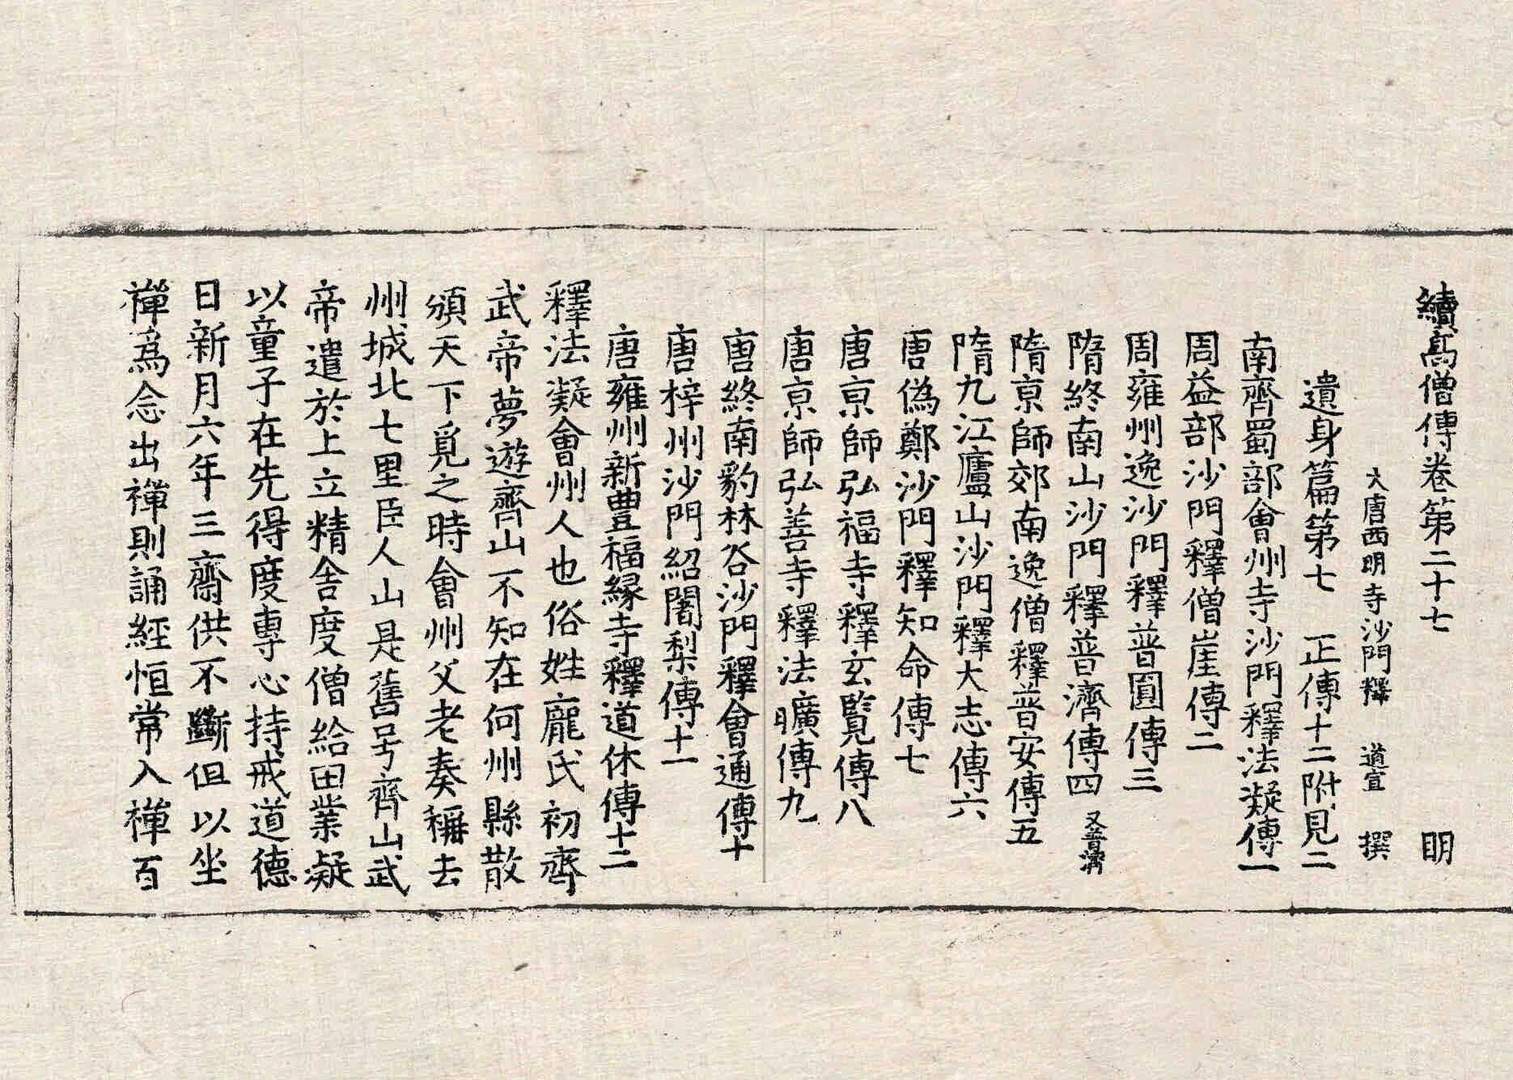 續高僧傳卷第二十七 明
大唐西明寺沙門釋 道宣 撰
遺身篇第七 正傳十二附見二
南齊蜀部會州寺沙門釋法凝傳一
周益部沙門釋僧崖傳二
周雍州逸沙門釋普圓傳三
隋終南山沙門釋普濟傳四 又普濟
隋京師郊南逸僧釋普安傳五
隋九江廬山沙門釋大志傳六
唐偽鄭沙門釋知命傳七
唐京師弘福寺釋玄覽傳八
唐京師弘善寺釋法曠傳九
唐終南豹林谷沙門釋會通傳十
唐梓州沙門紹闍梨傳十一
唐雍州新豊福緣寺釋道休傳十二
釋法凝會州人也俗姓龐氏初齊
武帝夢遊齊山不知在何州縣散
頒天下覓之時會州父老奏稱去
州城北七里臣人山是舊号齊山武
帝遣於上立精舍度僧給田業凝
以童子在先得度專心持戒道德
日新月六年三齋供不斷但以坐
禪為念出禪則誦經恒常入禪百